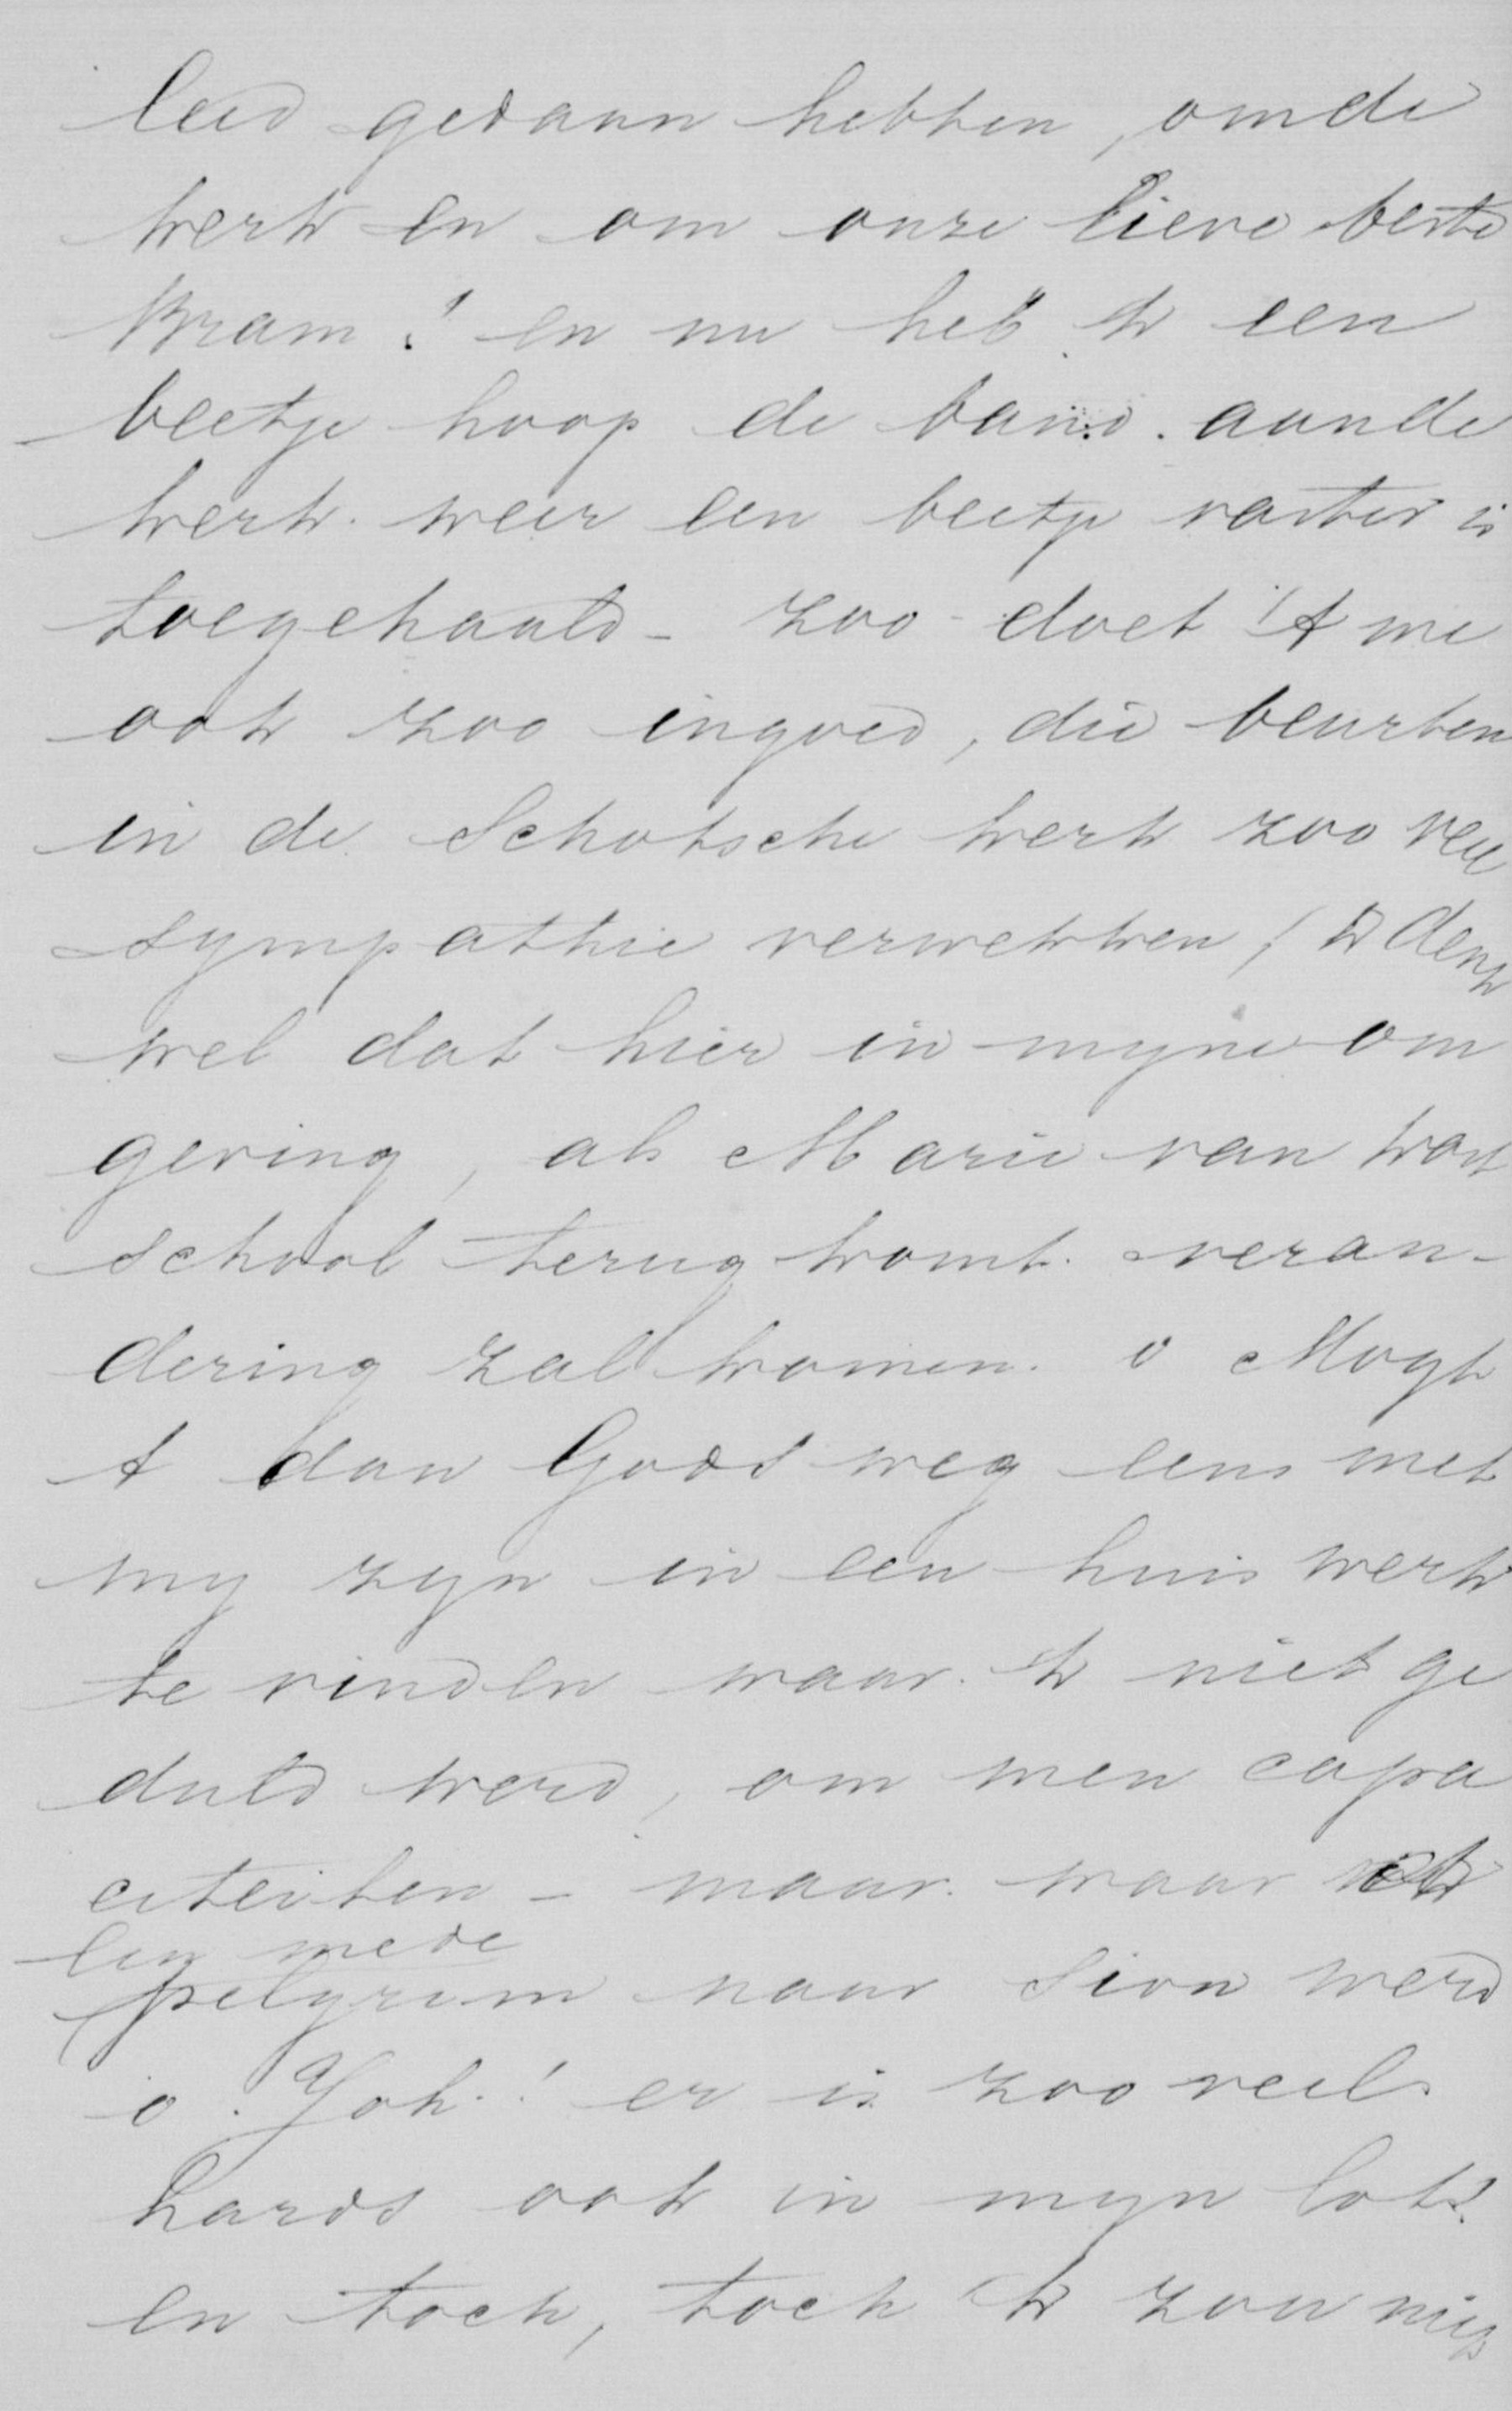 leed gedaan hebben, om de
kerk en om onze lieve beste
Bram! en nu heb 'k een
beetje hoop de band aan de
kerk weer een beetje vaster is
toegehaald - zoo doet 't me
ook zoo ingoed, die beurten
in de Schotsche kerk zoo veel
sympathie verwekken, 'k denk
wel dat hier in myne om
geving, als Marie van kost
school terug komt veran-
dering zal komen. o Mogt
't dan Gods weg eens met
my zyn in een huis werk
te vinden waar 'k niet ge
duld werd, om men capa
citeiten - maar waar
een mede
pelgrim naar Sion werd
o Joh! er is zoo veel
hards ook in myn lot!
en toch, toch 'k zou niet